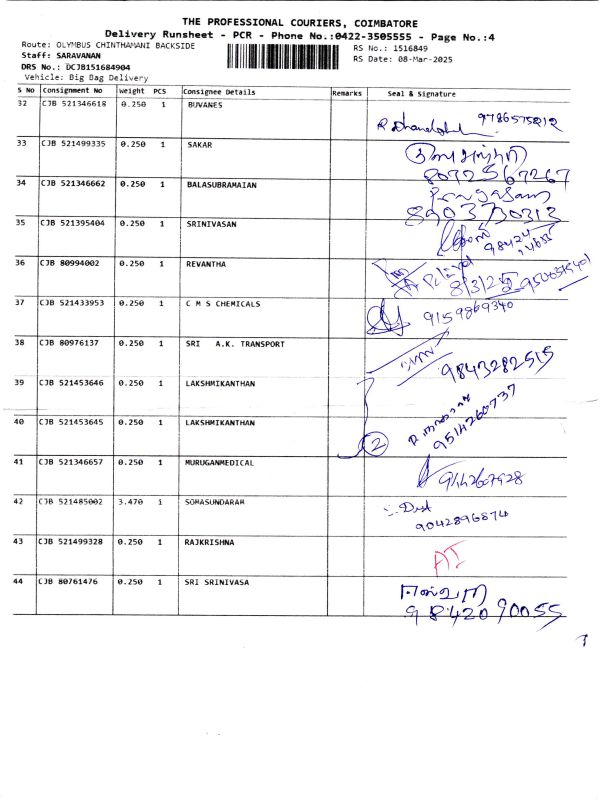 THE PROFESSIONAL COURIERS, COIMBATORE
Delivery Runsheet - PCR - Phone No.:0422-3505555 - Page No.:4
Route: OLYMBUS CHINTHAMANI BACKSIDE
RS No.: 1516849
Staff: SARAVANAN
RS Date: 08-Mar-2025
DRS No.: DCJB151684904
Vehicle: Big Bag Delivery
S No Consignment No Weight PCS Consignee Details Remarks Seal & Signature
32 CJB 521346618 0.250 1 BUVANES
9786575812
33 CJB 521499335 0.250 1 SAKAR
8072567267
34 CJB 521346662 0.250 1 BALASUBRAMAIAN
8903730313
35 CJB 521395404 0.250 1 SRINIVASAN
98424
36 CJB 80994002 0.250 1 REVANTHA
8/3/25
37 CJB 521433953 0.250 1 C M S CHEMICALS
9159869340
38 CJB 80976137 0.250 1 SRI A.K. TRANSPORT
9843282515
39 CJB 521453646 0.250 1 LAKSHMIKANTHAN
9514260737
40 CJB 521453645 0.250 1 LAKSHMIKANTHAN
2
41 CJB 521346657 0.250 1 MURUGANMEDICAL
9442607928
42 CJB 521485002 3.470 1 SOMASUNDARAM
9042896874
43 CJB 521499328 0.250 1 RAJKRISHNA
AI
44 CJB 80761476 0.250 1 SRI SRINIVASA
9842090055